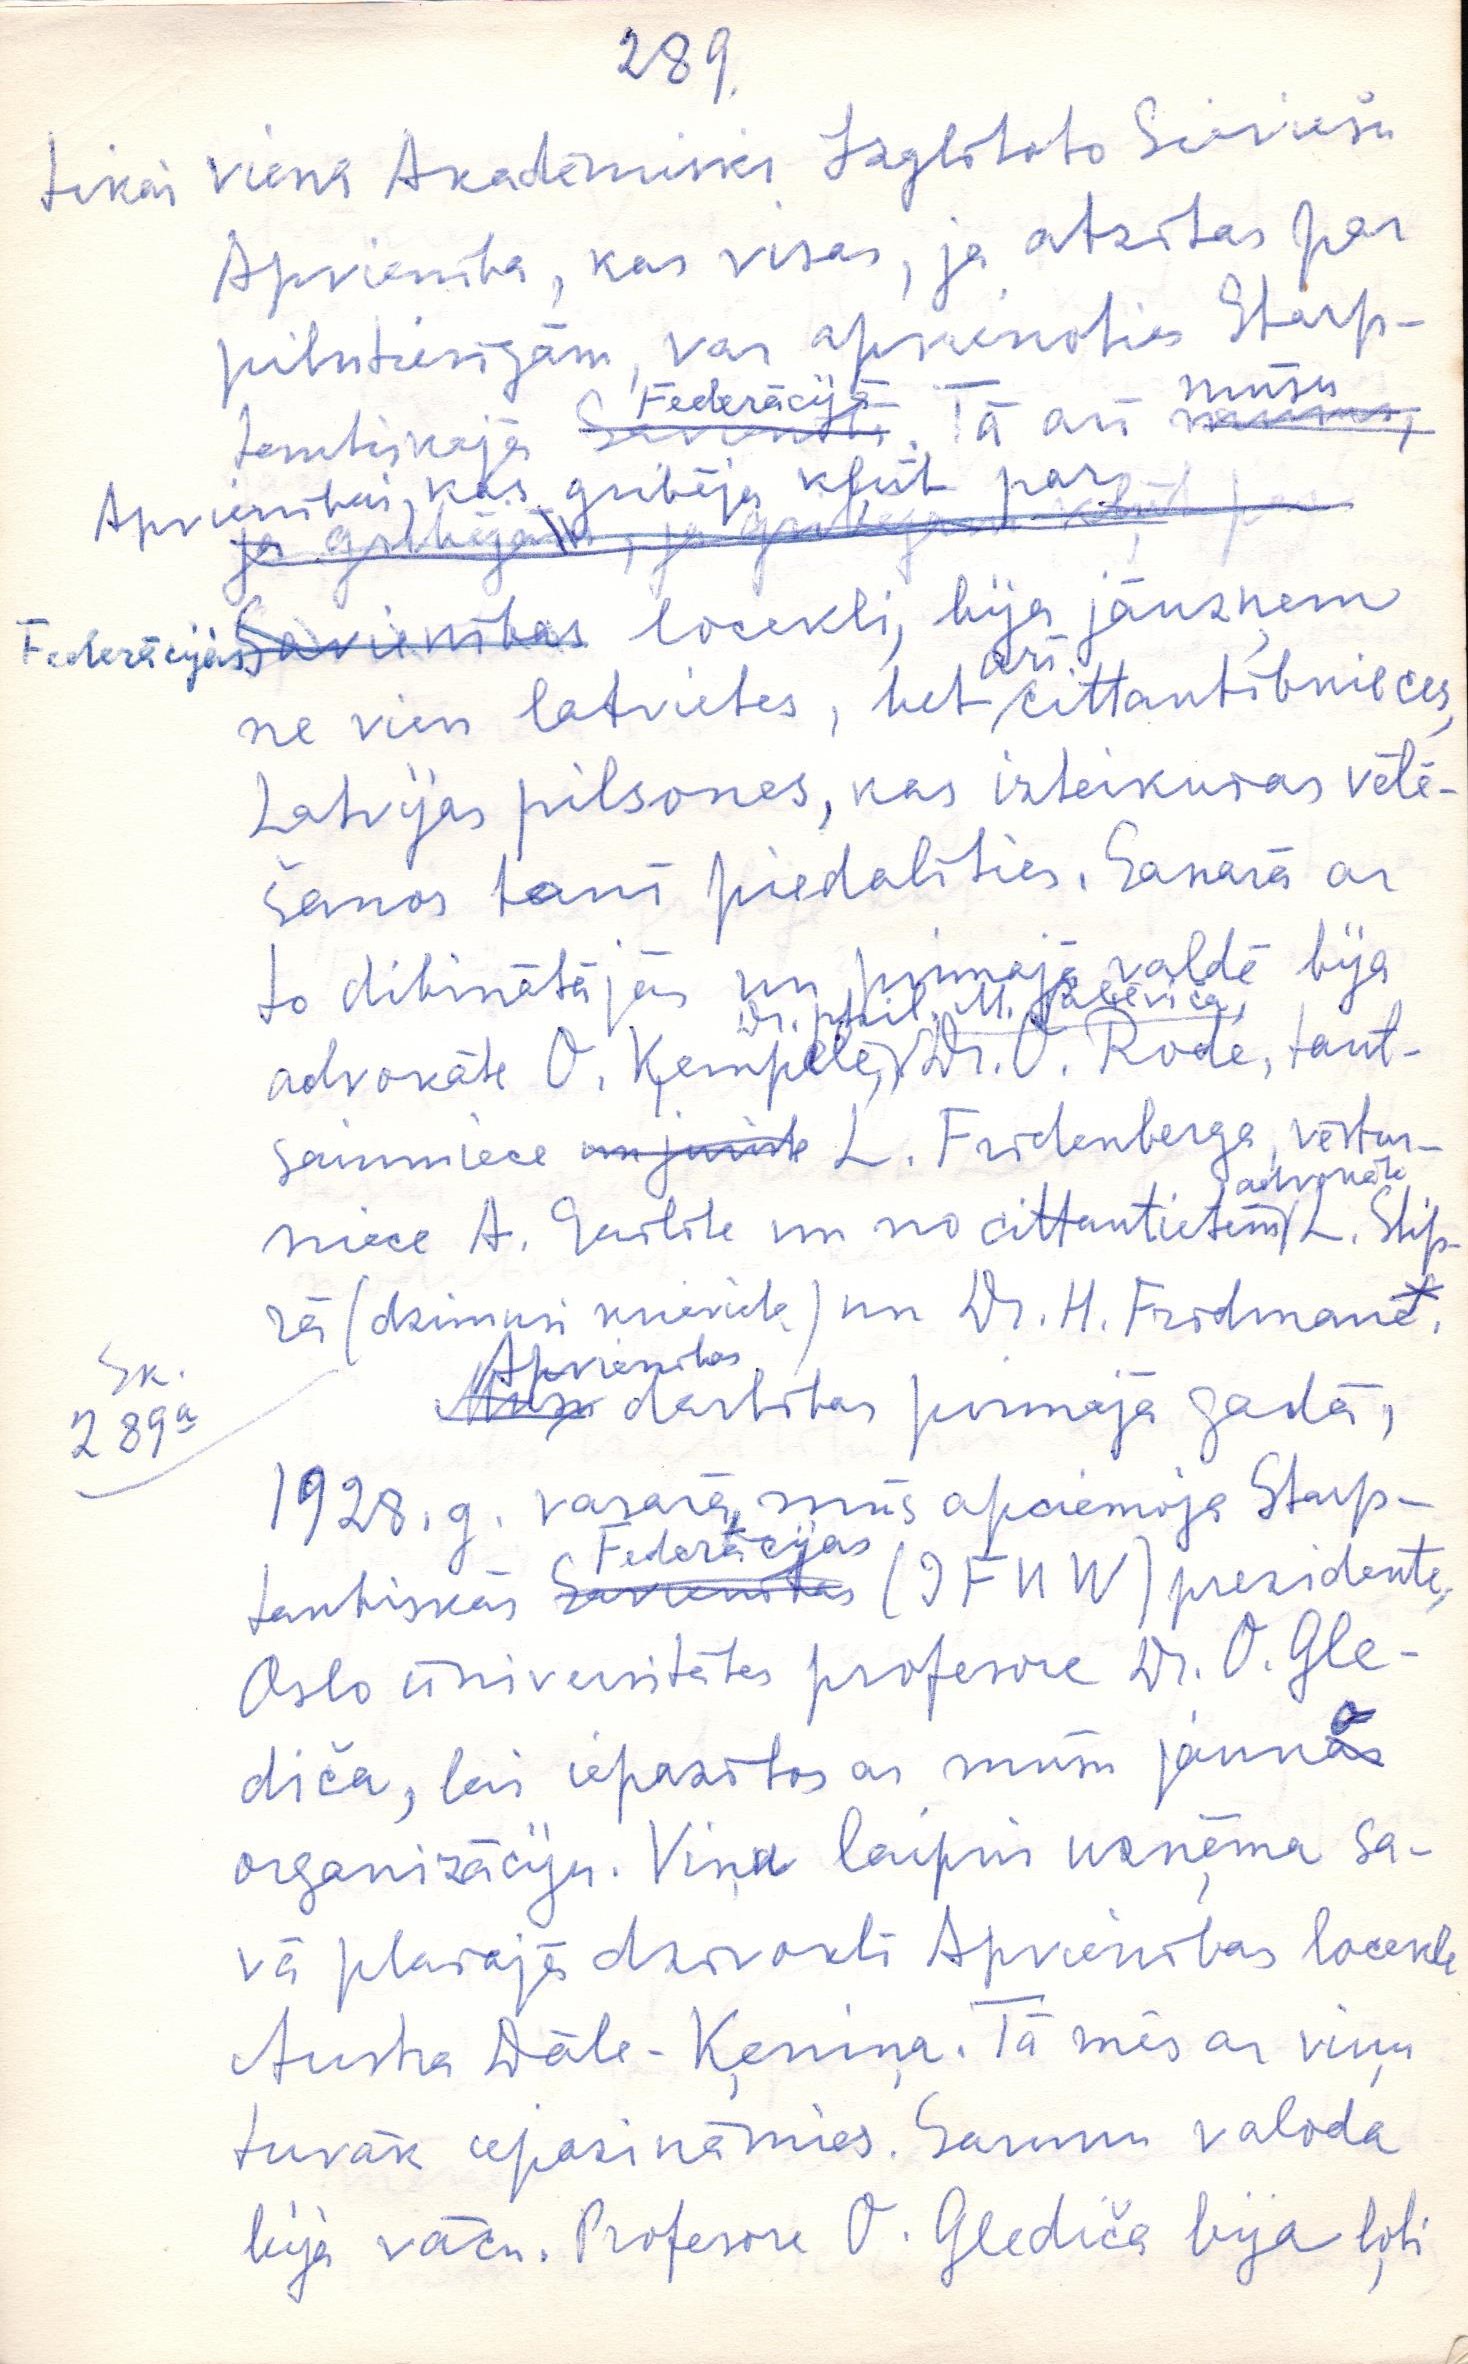 289.
tikai viena Akadēmiski Izglītoto Sieviešu
Apvienība, kas visas, ja atzītas par
pilntiesīgām, var apvienoties Starp-
tautiskajā Savienībā. Federācijā Tā arī mūsu
Apvienībai, kas gribēja kļūt par
ja gribējām, ja gribējām kļūt par
Federācijas Savienības locekli, bija jāuzņem
ne vien latvietes, bet arī cittautībnieces,
Latvijas pilsones, kas izteikušas vēlē-
šanos tanī piedalīties. Sakarā ar
to dibinātājās un pirmajā valdē bija
Dr. phil. M.
advokāte O. Ķempele, Dr. O. Rode, taut-
saimniece un juriste L. Frīdenberga, vēstur-
niece A. Gailīte un no cittautietēm advokāte L. Stip-
rā (dzimusi krieviete) un Dr. H. Frīdmane.
Sk.
289a
Mūsu Apvienības darbības pirmajā gadā,
1928. g. vasarā, mūs apciemoja Starp-
tautiskās Savienības Federācijas (IFUW) prezidente,
Oslo ūniversitātes profesore Dr. O. Gle-
diča, lai iepazītos ar mūsu jauno
organizāciju. Viņu laipni uzņēma sa-
vā plašajā dzīvoklī Apvienības locekle
Austra Dāle-Ķeniņa. Tā mēs ar viņu
tuvāk iepazināmies. Sarunu valoda
bija vācu. Profesore O. Glediča bija ļoti